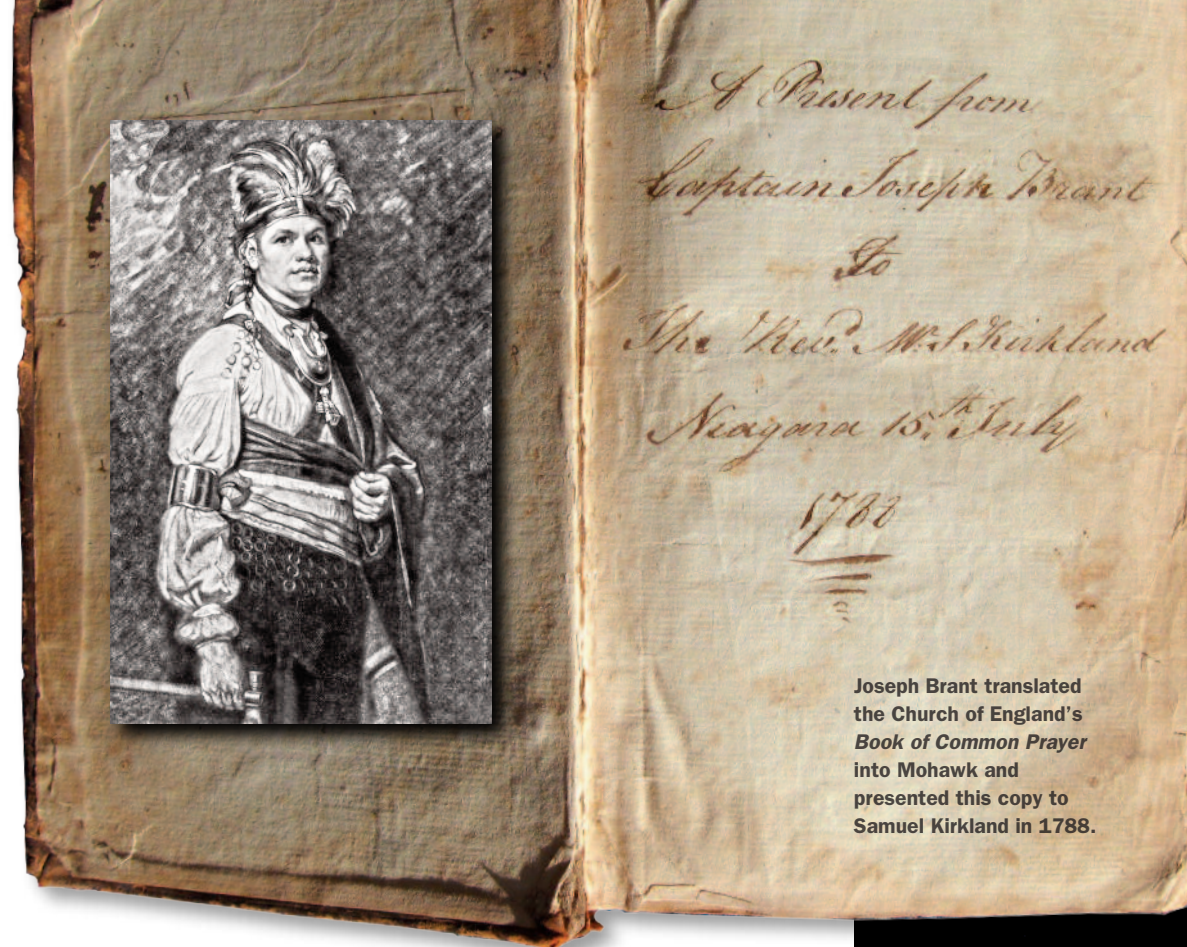 A Present from
Captain Joseph Brant
To
The Revd. Mr. S Kirkland
Niagara 15th. July
1788
Joseph Brant translated
the Church of England's
Book of Common Prayer
into Mohawk and
presented this copy to
Samuel Kirkland in 1788.